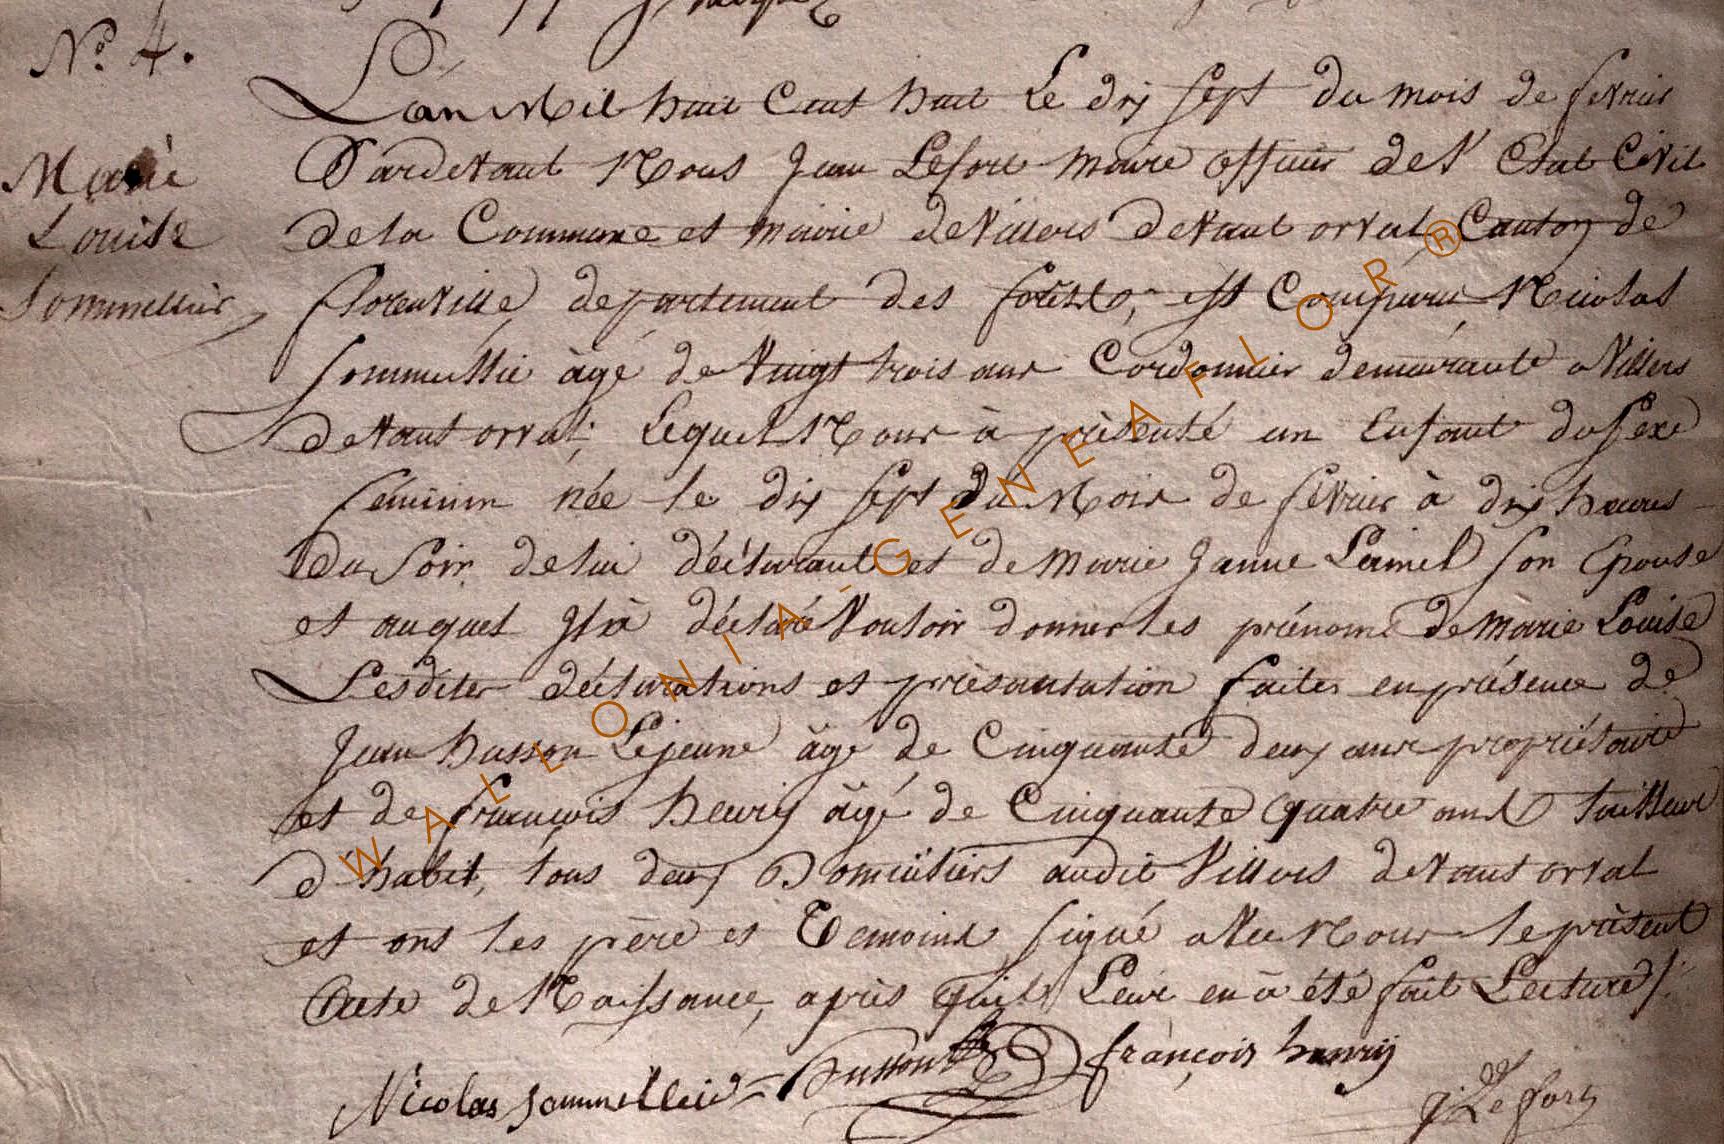 N.° 4.
Marie
Louise
Sommellier
L'an Mil huit Cent huit Le dix sept du mois de fevrier
Pardevant Nous Jean Lefort maire officier de l'Etat Civil
de la Commune et mairie de Villers devant orval Canton de
florenville departement des forêsts, est Comparu Nicolas
Sommellié àgé de Vingt trois ans Cordonnier demeurante a Villers
devant orval; Lequel Nous à présenté un Enfant du sexe
féminin née le dix sept du Mois de fevrier à dix heures
Du Soir de lui déclarant et de Marie Janne Lamel son Epouse
et auquel Il à déclaré Vouloir donner les prénoms de Marie Louise
Lesdites déclarations et présantation faites en présence de
Jean husson Lejeune âgé de Cinquante deux ans propriétaire
et de françois henrij âgé de Cinquante quatre ans tailleur
d'habit, tous deux Domiciliers audit Villers devant orval
et ont les père et Temoins signé avec Nous le présent
Acte de Naissance, après quils Leur en à été fait Lecture /.
Nicolas Sommellier husson françois henrij
j. Lefort
WALLONIA-GENEAFLOR®